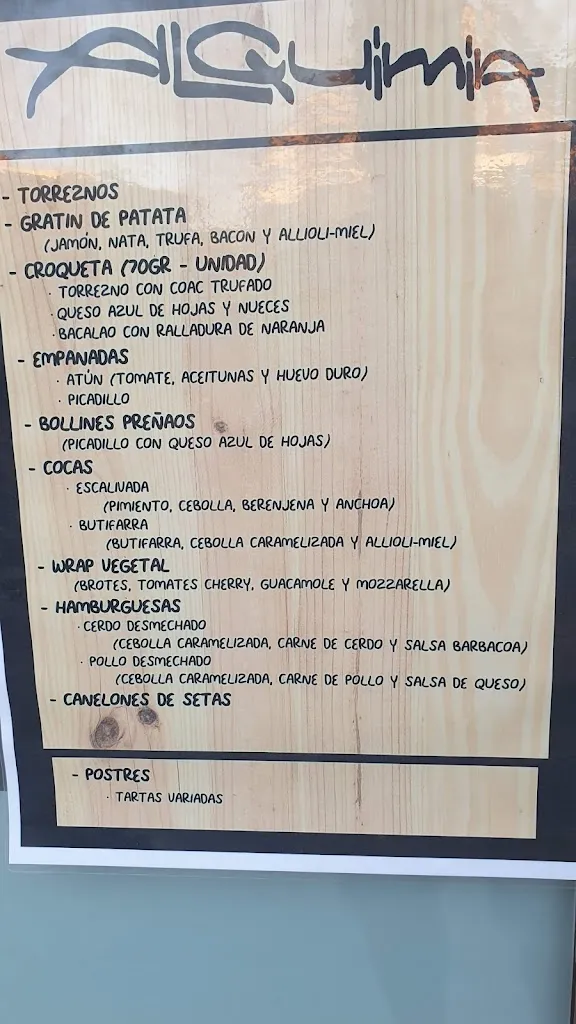 ALQUIMIA
- TORREZNOS
- GRATIN DE PATATA
(JAMÓN, NATA, TRUFA, BACON Y ALLIOLI-MIEL)
- CROQUETA (70GR - UNIDAD)
· TORREZNO CON COAC TRUFADO
· QUESO AZUL DE HOJAS Y NUECES
· BACALAO CON RALLADURA DE NARANJA
- EMPANADAS
· ATÚN (TOMATE, ACEITUNAS Y HUEVO DURO)
· PICADILLO
- BOLLINES PREÑAOS
(PICADILLO CON QUESO AZUL DE HOJAS)
- COCAS
· ESCALIVADA
(PIMIENTO, CEBOLLA, BERENJENA Y ANCHOA)
· BUTIFARRA
(BUTIFARRA, CEBOLLA CARAMELIZADA Y ALLIOLI-MIEL)
- WRAP VEGETAL
(BROTES, TOMATES CHERRY, GUACAMOLE Y MOZZARELLA)
- HAMBURGUESAS
· CERDO DESMECHADO
(CEBOLLA CARAMELIZADA, CARNE DE CERDO Y SALSA BARBACOA)
· POLLO DESMECHADO
(CEBOLLA CARAMELIZADA, CARNE DE POLLO Y SALSA DE QUESO)
- CANELONES DE SETAS
- POSTRES
· TARTAS VARIADAS